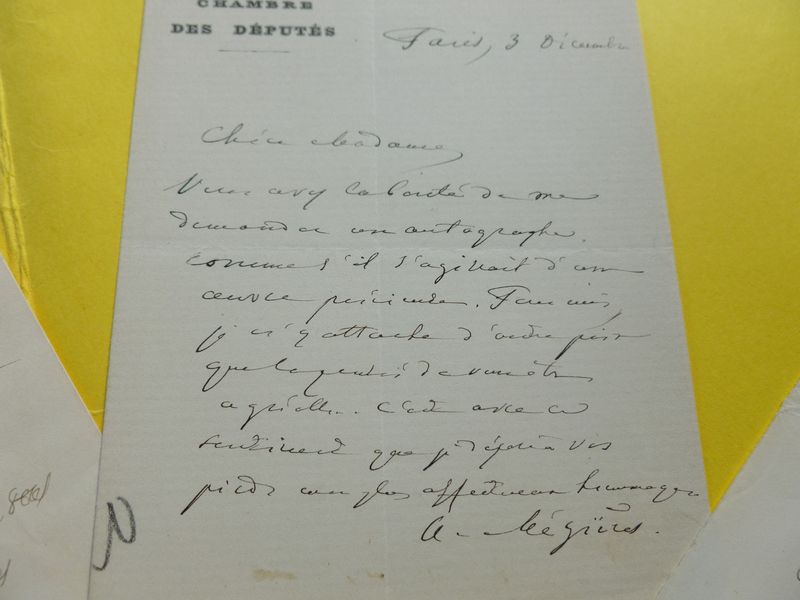 CHAMBRE
DES DÉPUTÉS
Paris, 3 Décembre
Chère Madame,
Vous avez la bonté de me
demander un autographe
comme s'il s'agissait d'une
œuvre précieuse. Pour moi,
je n'y attache d'autre prix
que la pensée de vous être
agréable. C'est avec ce
sentiment que je dépose à vos
pieds mes plus affectueux hommages
A. Mézières.
N